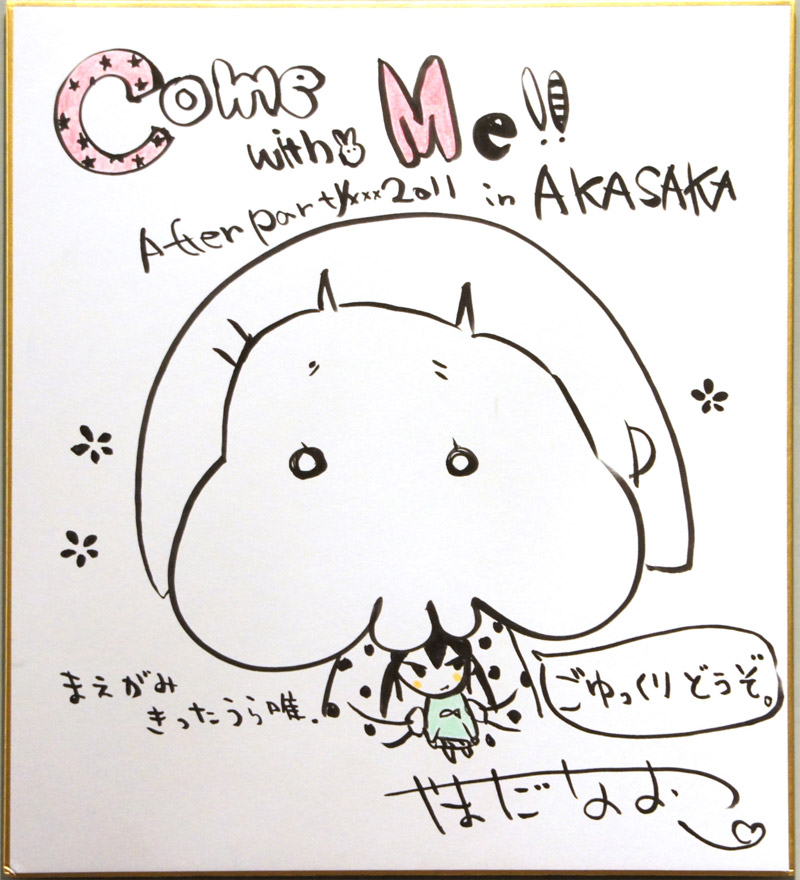 Come
with Me!!
Afterpartyxxx2011 in AKASAKA
まえがみ
きったうら唯.
ごゆっくりどうぞ。
やまだなお